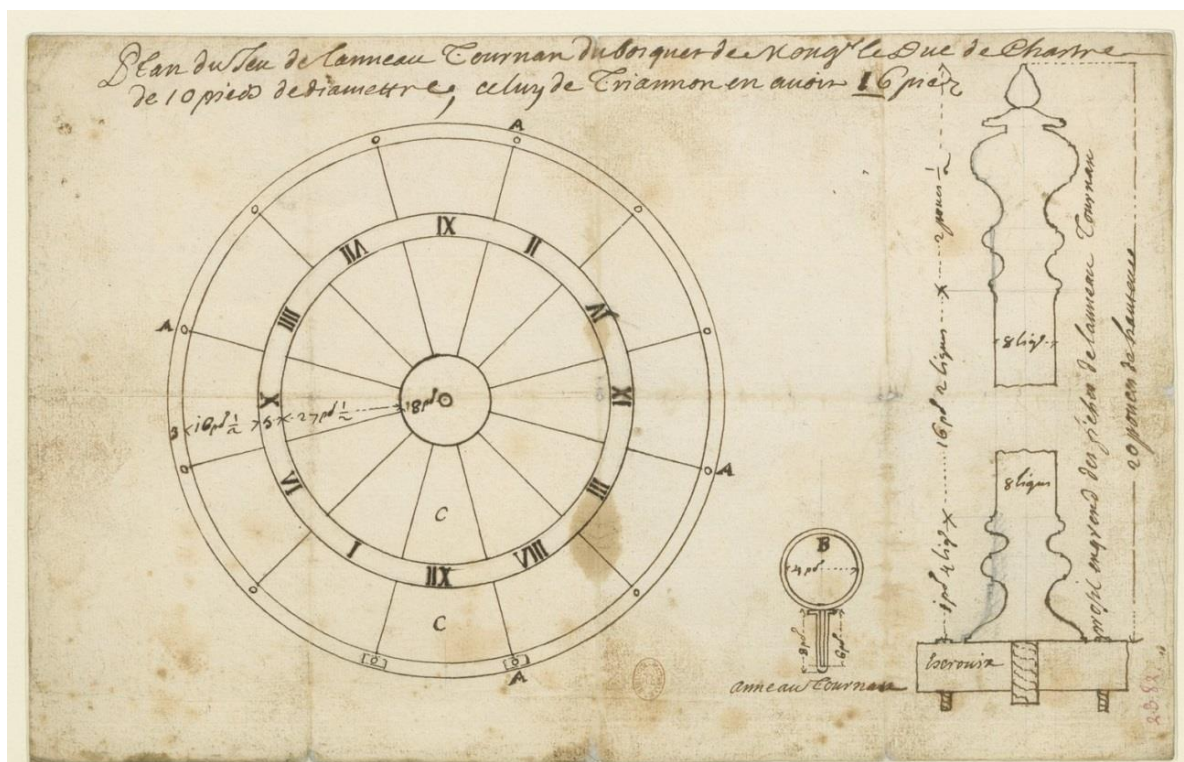 Plan du Jeu de lanneau Tournan du bosquet de Mongr le Duc de Chartre
de 10 pieds de diamettre, celuy de Triannon en avoir 16 piez
A
A
A
A
IX
II
IV
XI
III
VIII
XII
I
VI
X
IIII
VII
3
10 po 1/2
3
27 po 1/2
18 po
C
C
B
4 po
8 po
6 po
anneau Tournan
2 pouces 1/2
16 po 2 lignes
1 po 4 lig
8 lig
8 lignes
profil en grand des fiches de lanneau Tournan
20 pouces de hauteur